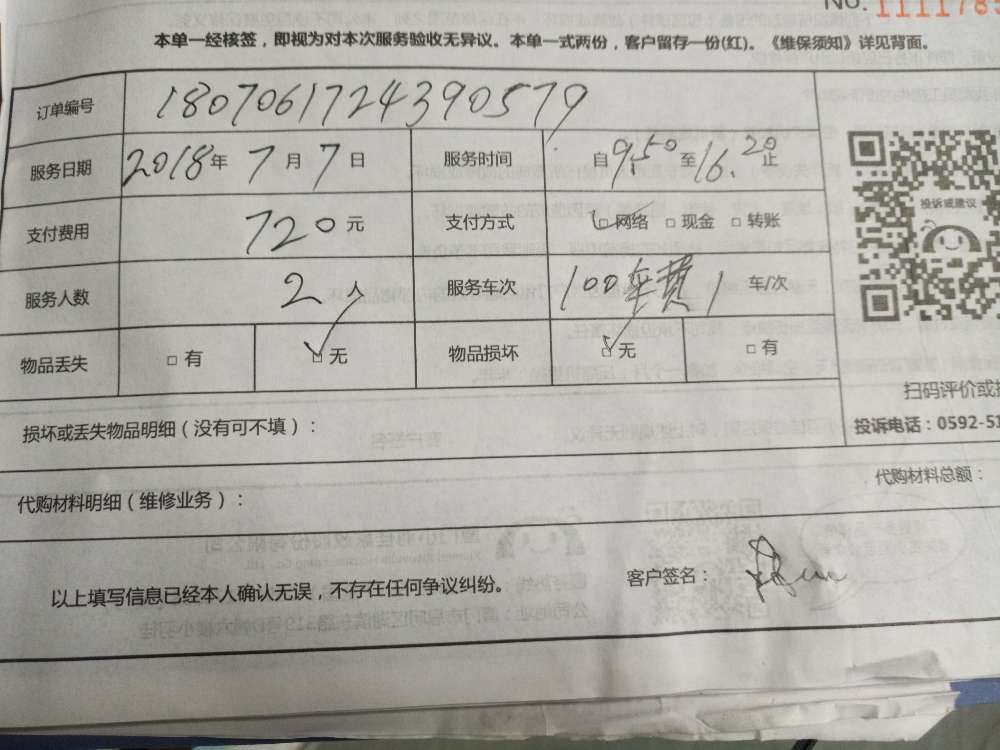 No. 1111785
本单一经核签，即视为对本次服务验收无异议。本单一式两份，客户留存一份(红)。《维保须知》详见背面。
订单编号 1807061724390579
服务日期 2018年 7月 7日 服务时间 自9:50至16.20止
投诉或建议
支付费用 720元 支付方式 □网络 □现金 □转账
服务人数 2人 服务车次 100车费1 车/次
物品丢失 □有 □无 物品损坏 □无 □有
扫码评价或
损坏或丢失物品明细（没有可不填）：
投诉电话：0592-51
代购材料明细（维修业务）：
代购材料总额：
以上填写信息已经本人确认无误，不存在任何争议纠纷。
客户签名：